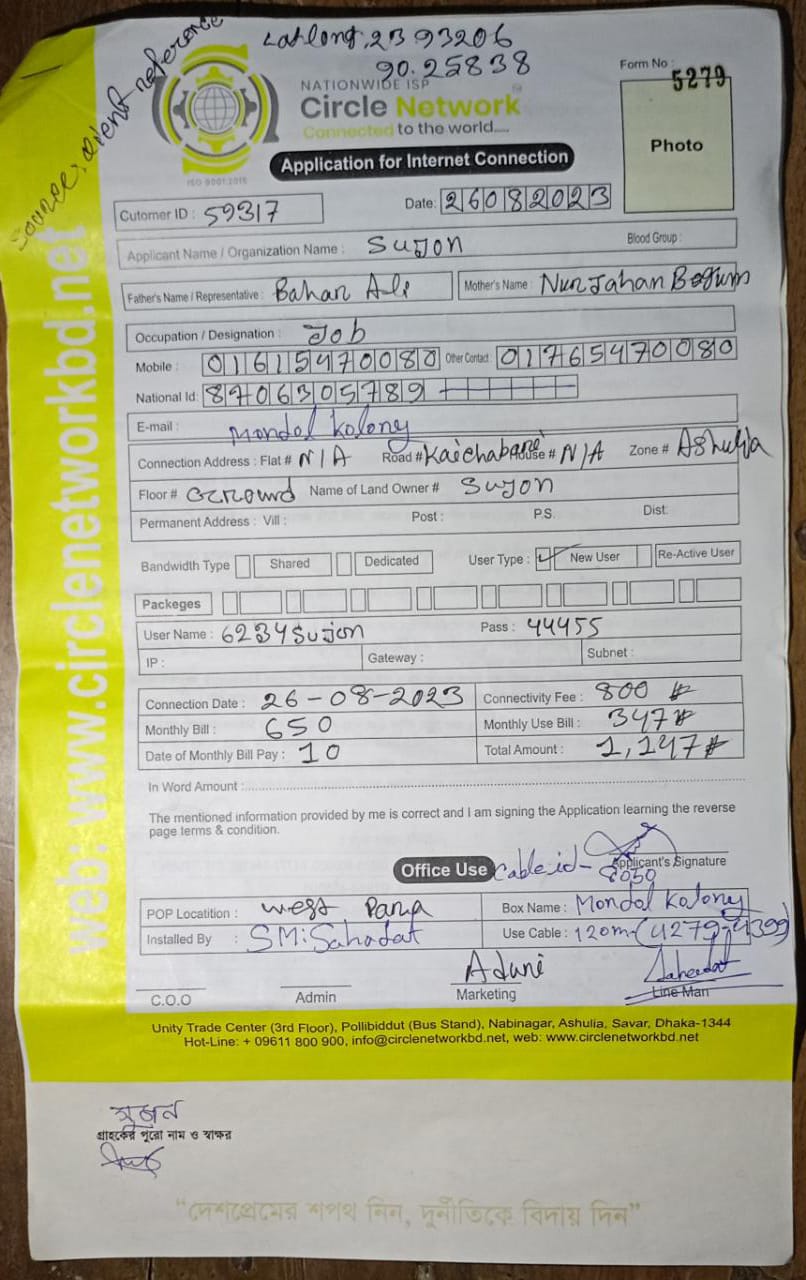 Lat long, 23 93206
90.25838
Source: client reference
NATIONWIDE ISP
Circle Network
Connected to the world.....
ISO 9001:2015
Form No : 5279
Photo
Application for Internet Connection
Cutomer ID : 59317 Date: 26082023
Applicant Name / Organization Name : Sujon Blood Group :
Father's Name / Representative : Bahar Ali Mother's Name : Nur Jahan Begum
Occupation / Designation : Job
Mobile : 01615470080 Other Contact : 01765470080
National Id: 8706305789
E-mail : Mondol Kolony
Connection Address : Flat # N/A Road # Kaichabari House # N/A Zone # Ashulia
Floor # Ground Name of Land Owner # Sujon
Permanent Address : Vill : Post : P.S. Dist:
Bandwidth Type Shared Dedicated User Type : ✓ New User Re-Active User
Packeges
User Name : 6234Sujon Pass : 44455
IP : Gateway : Subnet :
Connection Date : 26-08-2023 Connectivity Fee : 800
Monthly Bill : 650 Monthly Use Bill : 347
Date of Monthly Bill Pay : 10 Total Amount : 1,147
In Word Amount :
The mentioned information provided by me is correct and I am signing the Application learning the reverse
page terms & condition.
Applicant's Signature
Office Use Cable id- 8050
POP Locatition : West Para Box Name : Mondol Kolony
Installed By : SM: Sahadat Use Cable : 120m-(4279-4399)
C.O.O Admin Marketing Line Man
Unity Trade Center (3rd Floor), Pollibiddut (Bus Stand), Nabinagar, Ashulia, Savar, Dhaka-1344
Hot-Line: + 09611 800 900, info@circlenetworkbd.net, web: www.circlenetworkbd.net
web: www.circlenetworkbd.net
সুজন
গ্রাহকের পুরো নাম ও স্বাক্ষর
“দেশপ্রেমের শপথ নিন, দুর্নীতিকে বিদায় দিন”